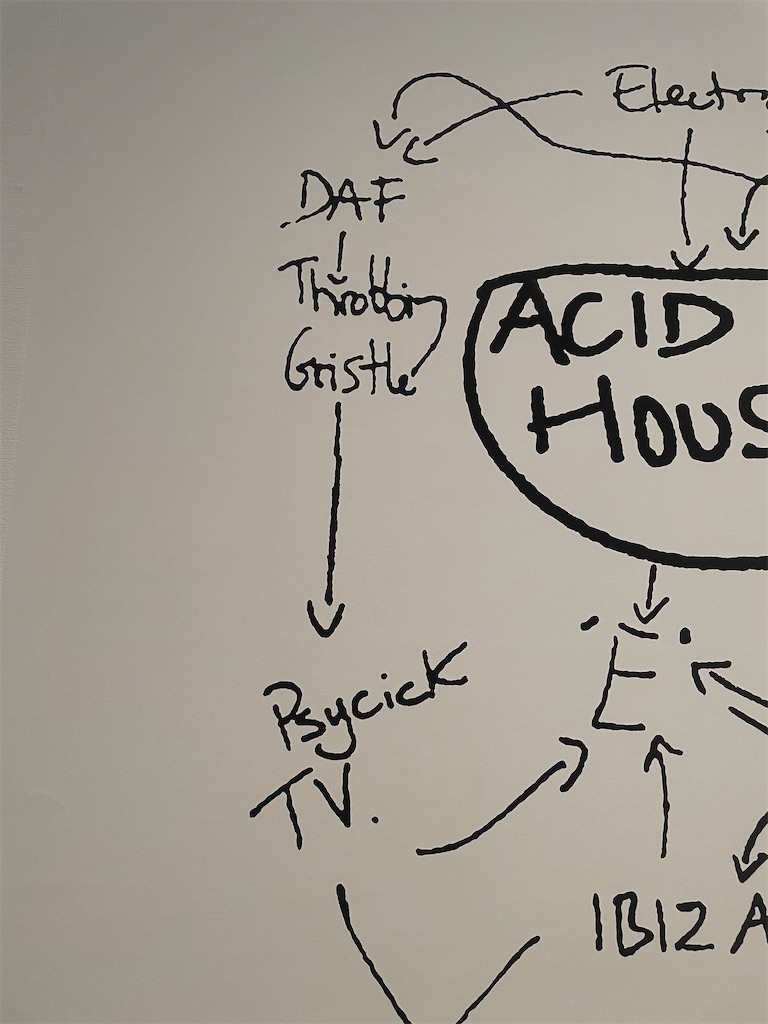 Electro
DAF
Throbbin
Gristle
ACID
HOUS
"E"
Psycick
TV.
IBIZA